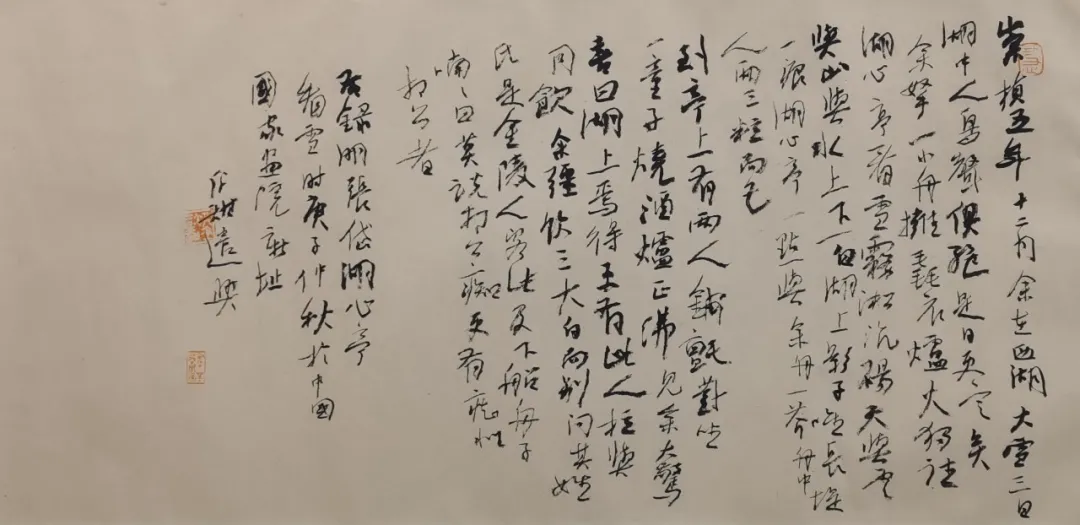 崇禎五年十二月余在西湖大雪三日
湖中人鳥聲俱絕是日更定矣
余拏一小舟擁毳衣爐火獨往
湖心亭看雪霧淞沆碭天與雲
與山與水上下一白湖上影子惟長堤
一痕湖心亭一點與余舟一芥舟中
人兩三粒而已
到亭上有兩人鋪氈對坐
一童子燒酒爐正沸見余大驚
喜曰湖上焉得更有此人拉與
同飲余強飲三大白而別問其姓
氏是金陵人客此及下船舟子
喃喃曰莫說相公痴更有痴似
相公者
右錄明張岱湖心亭
看雪時庚子仲秋於中國
國家畫院新址
遣興